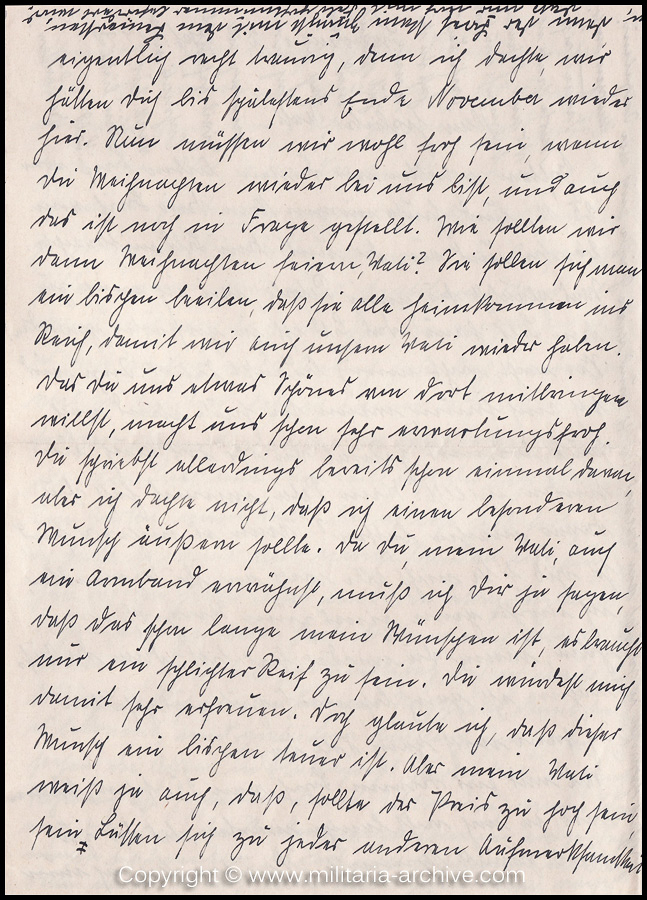 eigentlich recht traurig, denn ich dachte, wir
hätten Dich bis spätestens Ende November wieder
hier. Nun müssen wir wohl froh sein, wenn
Du Weihnachten wieder bei uns bist, und auch
das ist noch in Frage gestellt. Wie sollten wir
dann Weihnachten feiern, Vati? Sie sollen sich man
ein bischen beeilen, daß sie alle heimkommen ins
Reich, damit wir auch unsern Vati wieder haben.
Das Du uns etwas Schönes von dort mitbringen
willst, macht uns schon sehr erwartungsfroh.
Du schriebst allerdings bereits schon einmal davon,
aber ich dachte nicht, daß ich einen besonderen
Wunsch äußern sollte. Da Du, mein Vati, auch
ein Armband erwähnst, muß ich Dir ja sagen,
daß das schon lange mein Wünschen ist, es braucht
nur ein schlichter Reif zu sein. Du würdest mich
damit sehr erfreuen. Doch glaube ich, daß dieser
Wunsch ein bischen teuer ist. Aber mein Vati
weiß ja auch, daß, sollte der Preis zu hoch sein,
sein sich zu jeder anderen Aufmerksamkeit
Copyright © www.militaria-archive.com